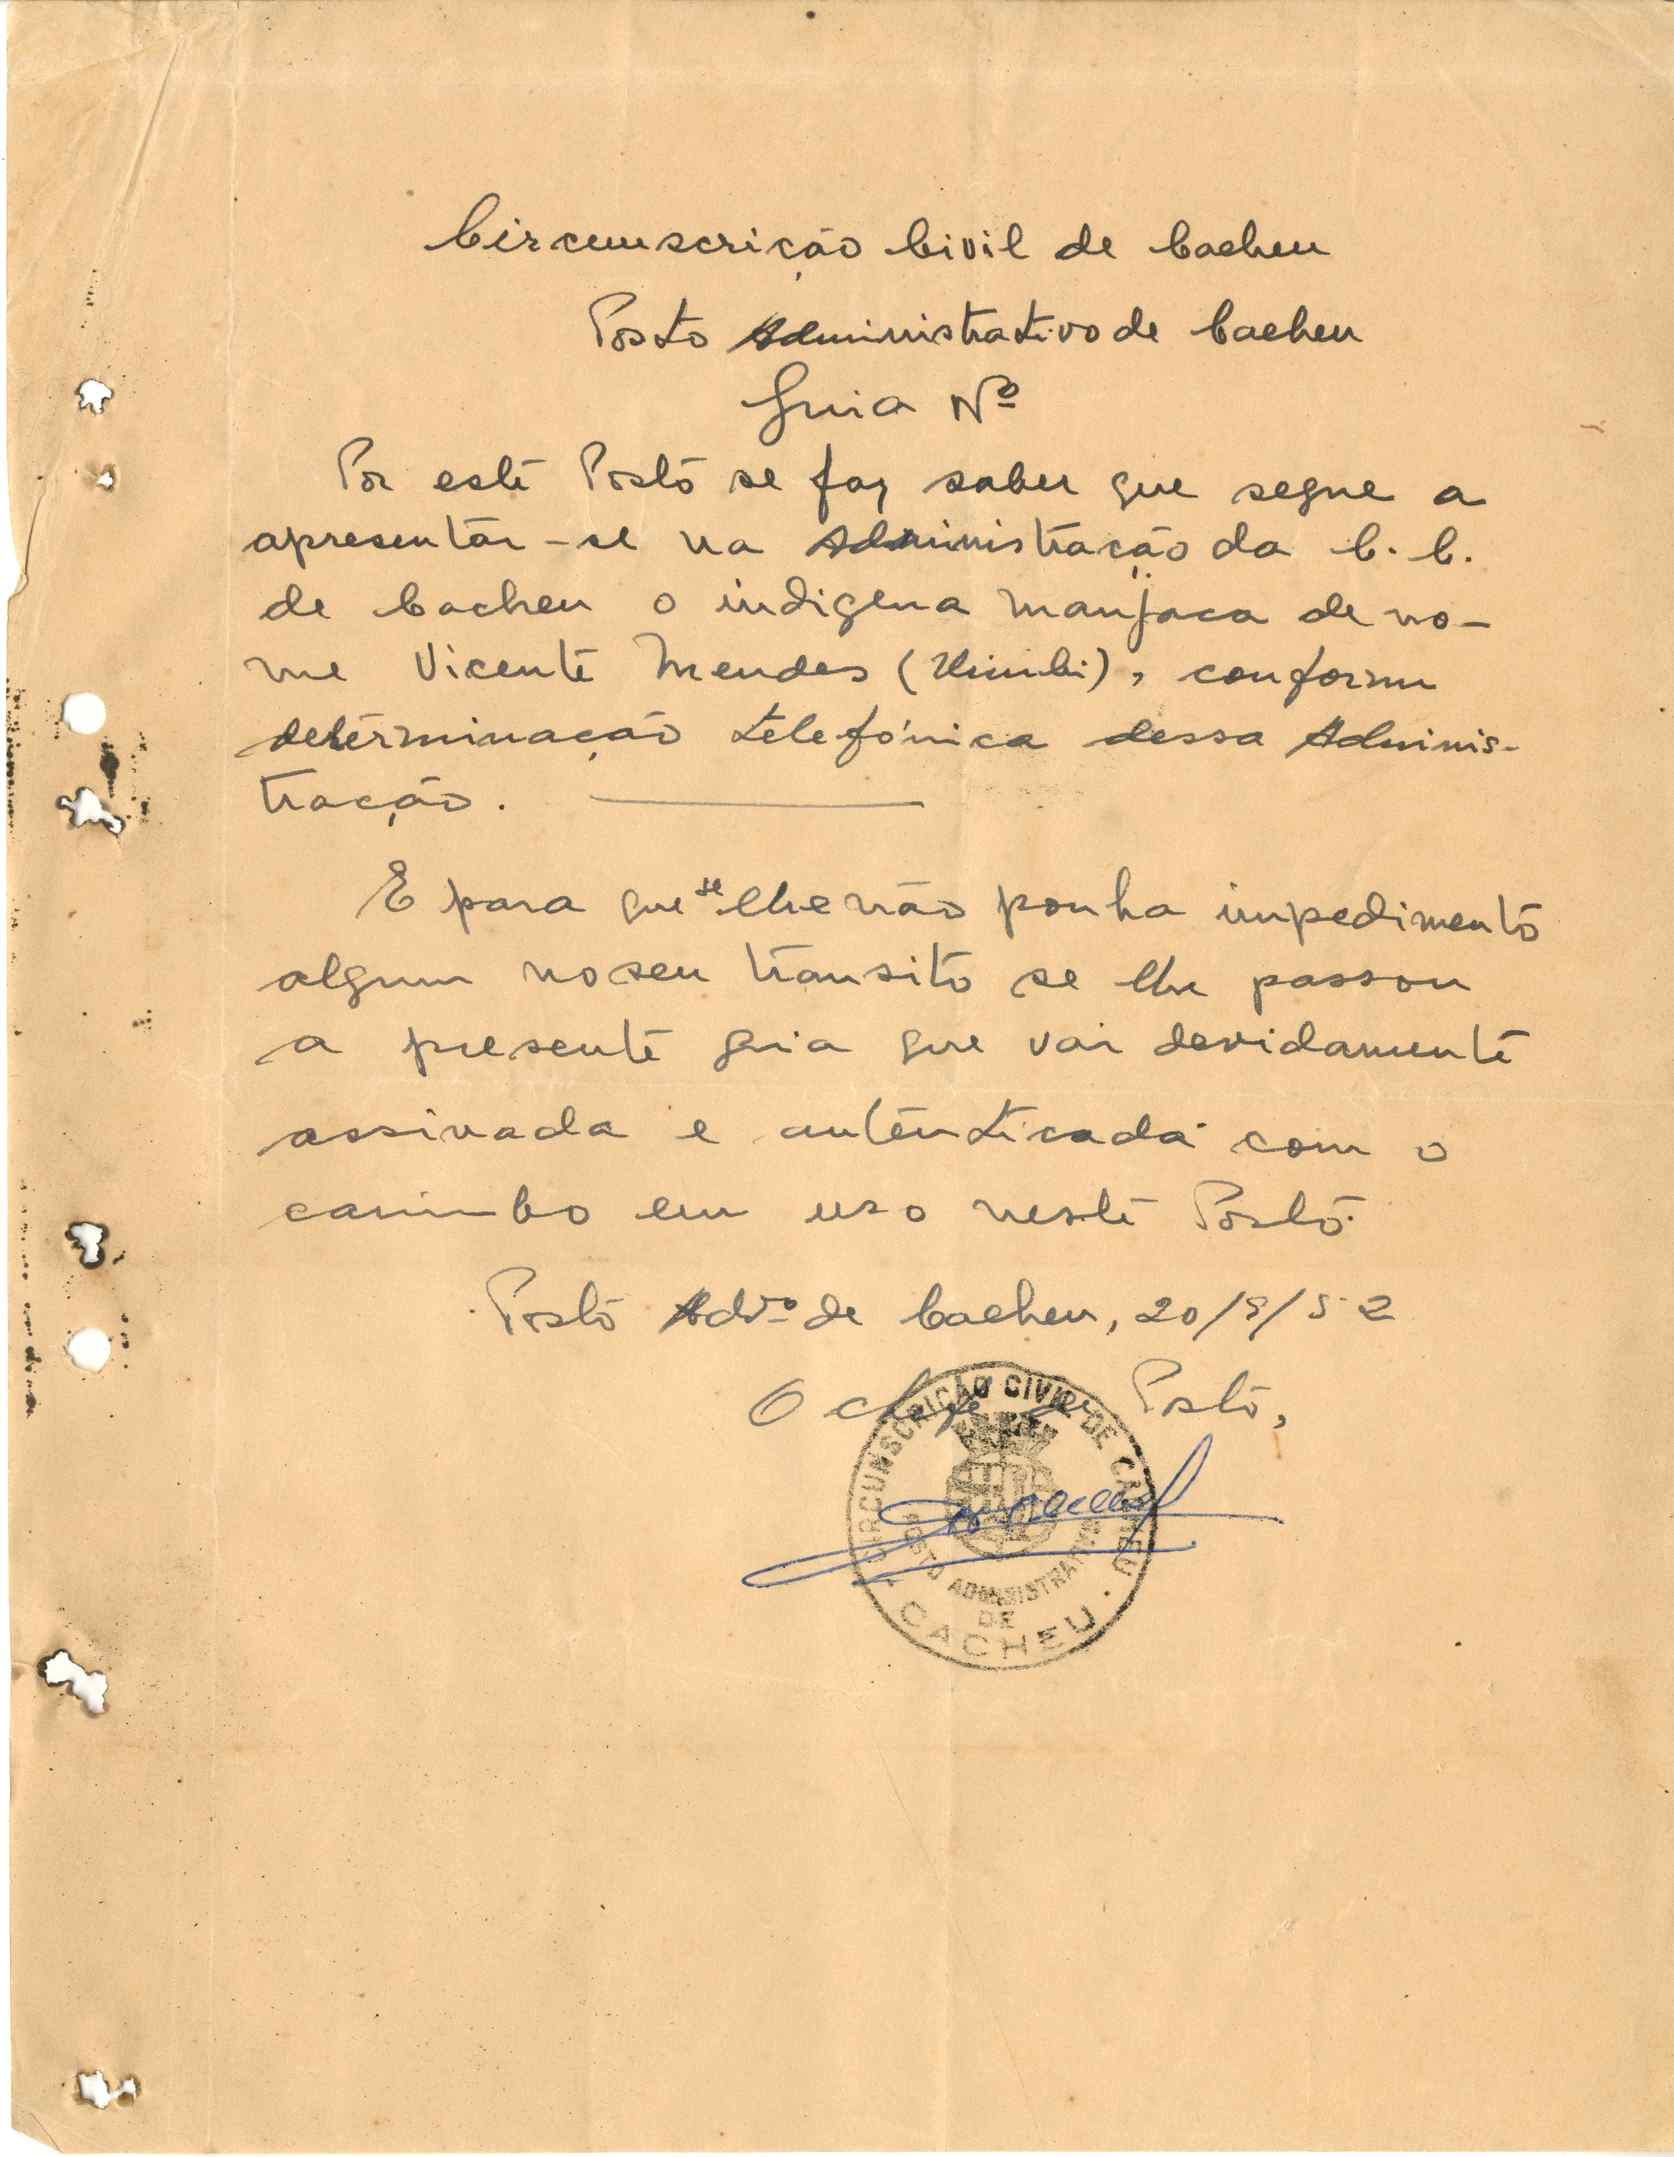 Circunscrição Civil de Cacheu
Posto Administrativo de Cacheu
Guia Nº
Por este Posto se faz saber que segue a
apresentar-se na Administração da C. C.
de Cacheu o indigena manjaca de no-
me Vicente Mendes ( ), conforme
determinação telefónica dessa Adminis-
tração.
E para que se lhe não ponha impedimento
algum no seu transito se lhe passou
a presente guia que vai devidamente
assinada e autenticada com o
carimbo em uso neste Posto.
Posto Adv.º de Cacheu, 20/5/52
O chefe de Posto,
CIRCUNSCRIÇÃO CIVIL DE CACHEU
POSTO ADMINISTRATIVO
DE
CACHEU